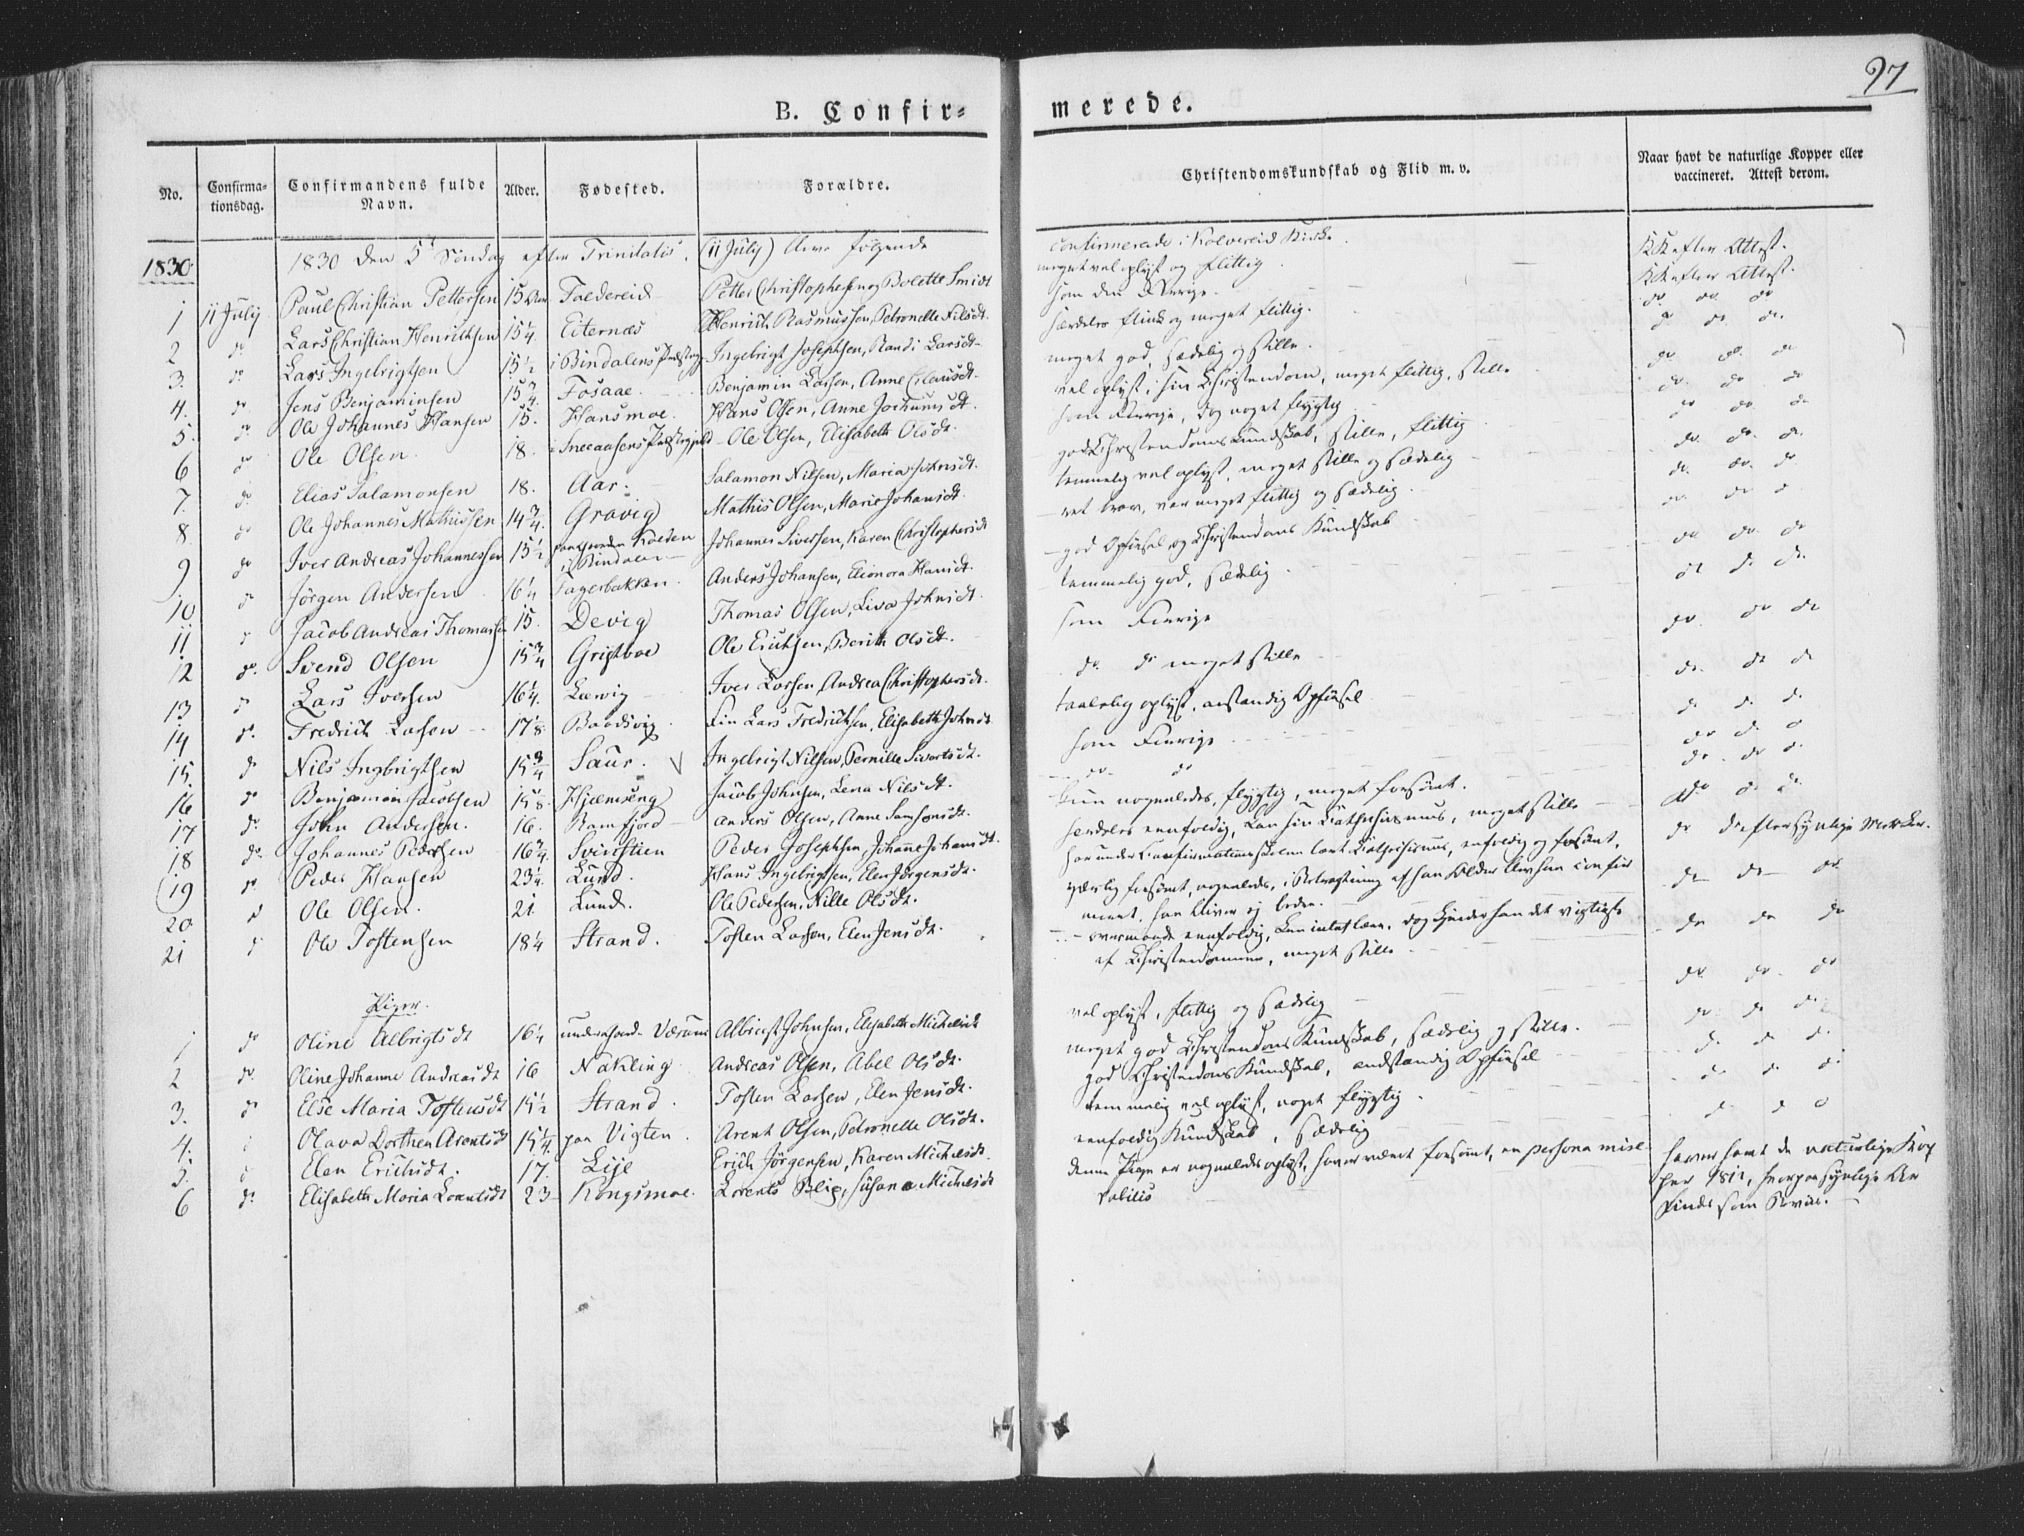 97
B. Confir=
merede.
No. Confirma-tionsdag. Confirmandens fulde Navn. Alder. Fødested. Forældre. Christendomskundskab og Flid m. v. Naar havt de naturlige Kopper eller vaccineret. Attest derom.
1830 1830 den 5t Søndag efter Trinitatis, (11 July) bleve følgende confirmerede i Kolvereid Kirke
1 11 July Paul Christian Pettersen 15 Aar Foldereid Petter Christophersen og Bolette Smidt meget vel oplyst og flittig KK efter Attest.
2 do Lars Christian Henrichsen 15 1/4 Eiternæs Henrich Rasmussen, Petronelle Nilsdt. som den KK efter Attest.
3. do Lars Ingebrigtsen 15 1/2 i Bindalens Ingebrigt Josephsen, Randi Larsdt særdeles flink og meget flittig. do do do
4. do Jens Benjaminsen 15 3/4 Fosaae Benjamin Larsen, Anne meget god, sædelig og stille. do do do
5. do Ole Johannes Hansen 15. Hansmoe. Hans Olsen, Anne Jochumsdt. vel oplyst i sin Christendom, meget flittig, stille do do do
6 do Ole Olsen 18. i Sneaasens Ole Olsen, Elisabeth Olsdt. som Forrige, dog noget flygtig do do do
7. do Elias Salamonsen 18. Aar. Salamon Nilsen, Maria Johnsdt. god Christendoms Kundskab, stille, flittig do do do
8 do Ole Johannes Mathissen 14 3/4. Gravig Mathis Olsen, Marie Johansdt. temmelig vel oplyst, meget stille og sædelig do do do
9 do Iver Andreas Johannessen 15 1/2 i Bindalen Johannes Sivertsen, Karen Christophersdt ret brav, var meget flittig og sædelig do do do
10 do Jørgen Andersen 16 1/4 Fagerbakken Anders Johansen, Elionora Hansdt. god Opførsel og Christendoms Kundskab do do do
11 do Jacob Andreas Thomassen 15. Devig Thomas Olsen, Liva Johnsdt. temmelig god, sædelig do do do
12 do. Svend Olsen 15 3/4 Gristboe Ole Erichsen, Berith Olsdt. som Forrige do do do
13 do Lars Iversen 16 1/4. Lævig Iver Larsen, Andrea Christophersdt. do do meget stille do do do
14 do. Fredrich Larsen 17 1/8 Baadsvig Lars Fredrichsen, Elisabeth Johnsdt taalelig oplyst, anstændig Opførsel do do do
15. do Nils Ingbrigtsen 15 3/4 Saur. Ingebrigt Nilsen, Pernille Sivertsdt. som Forrige do do do
16 do Benjamin Jacobsen 15 1/8. Hjelmseng Jacob Johnsen, Lena Nilsdt. do do do do do
17 do. John Andersen. 16. Ramfjord Anders Olsen, Anne Samsonsdt. kun nogenledes, flygtig, meget forsømt. do do do
18 do. Johannes Pedersen 16 3/4. Peder Josephsen, Johanne Johansdt. særdeles eenfoldig, kan sin Catechismus, meget stille do efter synlige Mærker.
19 do Peder Hansen 23 1/4. Lund. Hans Ingebrigtsen, Elen Jørgensdt. har under Confirmationsskolen lært Catechismus, enfoldig og forsømt,
20 d Ole Olsen. 21 Lund. Ole Pedersen, Nille Olsdt. forsømt, nogenledes, i Betragtning af han confirmeret, han bliver ej bedre. do do do
21 d Ole Tostensen 18 1/4 Strand. Tosten Larsen, Elen Jensdt. overmaade eenfoldig, dog det vigtigste af Christendommen, meget stille do do do
Piger.
1 do Oline Albrigtsdt 16 1/4 Værum Albrigt Johnsen, Elisabeth Michelsdt vel oplyst, flittig og sædelig do do do
2 do. Oline Johanne Andreasdt 16 Nakling Andreas Olsen, Abel Olsdt. meget god Christendoms Kundskab, sædelig og stille. do do do
3. do Else Maria Tostensdt 15 1/2 Strand. Tosten Larsen, Elen Jensdt. god Christendoms Kundskab, anstændig Opførsel d d d
4. d Olava Dorthea Arentsdt 15 1/4. paa Vigten. Arent Olsen, Petronelle Olsdt. temmelig vel oplyst, noget flygtig d d d
5. d Elen Erichsdt. 17. Lije Erich Jørgensen, Karen Michelsdt. eenfoldig Kundskab, sædelig d d d
6 do. Elisabeth Maria Lorentsdt 23 Kongsmoe. Lorents Blix, Susana Michelsdt denne Pige er nogenledes oplyst, haver været forsømt, en persona miserabilis haver havt de naturlige Kopper 1812, synlige